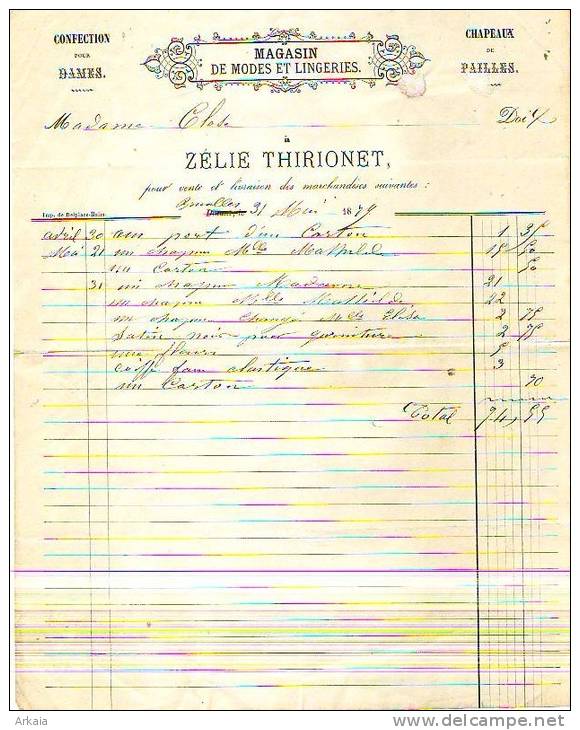 CONFECTION
POUR
DAMES.
MAGASIN
DE MODES ET LINGERIES.
CHAPEAUX
DE
PAILLES.
Madame Close Doit
à
ZÉLIE THIRIONET,
pour vente et livraison des marchandises suivantes :
Imp. de Delplace-Huin Bruxelles 31 Mai 1879
avril 30 port d'un Carton 1 35
Mai 21 un chapeau Mlle Mathilde 15 50
un Carton 50
31 un chapeau Madame 21
un chapeau Mlle Mathilde 22
un chapeau changé Mlle Elisa 2 75
satin noir pour garniture 2 75
une fleur 5
coiffe élastique 3
un Carton 30
Total 74, 55
Arkaia
www.delcampe.net